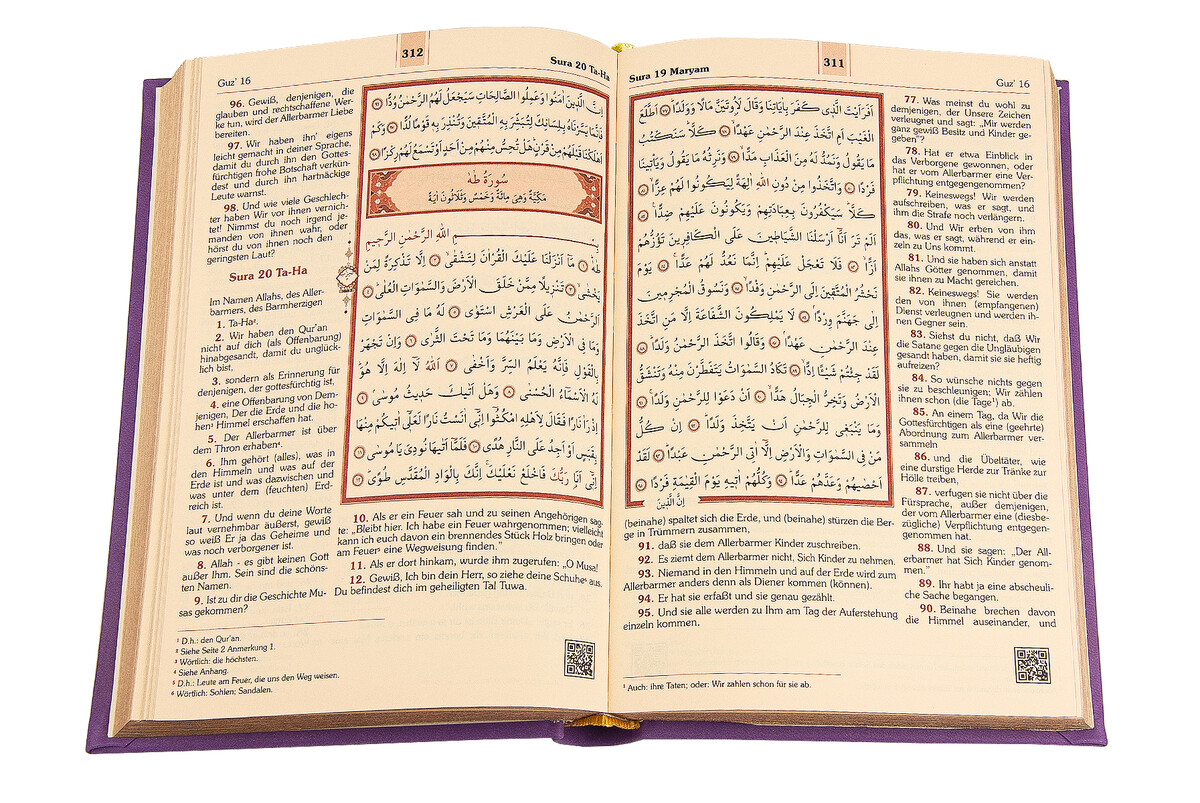 Sura 19 Maryam
311
Guz' 16
اَفَرَاَيْتَ الَّذ۪ي كَفَرَ بِاٰيَاتِنَا وَقَالَ لَاُو۫تَيَنَّ مَالًا وَوَلَدًاۜ ﴿٧٧﴾ اَطَّلَعَ
الْغَيْبَ اَمِ اتَّخَذَ عِنْدَ الرَّحْمٰنِ عَهْدًاۙ ﴿٧٨﴾ كَلَّاۜ سَنَكْتُبُ
مَا يَقُولُ وَنَمُدُّ لَهُ مِنَ الْعَذَابِ مَدًّاۙ ﴿٧٩﴾ وَنَرِثُهُ مَا يَقُولُ وَيَأْت۪ينَا
فَرْدًا ﴿٨٠﴾ وَاتَّخَذُوا مِنْ دُونِ اللّٰهِ اٰلِهَةً لِيَكُونُوا لَهُمْ عِزًّاۙ ﴿٨١﴾
كَلَّاۜ سَيَكْفُرُونَ بِعِبَادَتِهِمْ وَيَكُونُونَ عَلَيْهِمْ ضِدًّا۟ ﴿٨٢﴾
اَلَمْ تَرَ اَنَّٓا اَرْسَلْنَا الشَّيَاط۪ينَ عَلَى الْكَافِر۪ينَ تَؤُزُّهُمْ
اَزًّاۙ ﴿٨٣﴾ فَلَا تَعْجَلْ عَلَيْهِمْۜ اِنَّمَا نَعُدُّ لَهُمْ عَدًّاۚ ﴿٨٤﴾ يَوْمَ
نَحْشُرُ الْمُتَّق۪ينَ اِلَى الرَّحْمٰنِ وَفْدًاۙ ﴿٨٥﴾ وَنَسُوقُ الْمُجْرِم۪ينَ
اِلٰى جَهَنَّمَ وِرْدًاۢ ﴿٨٦﴾ لَا يَمْلِكُونَ الشَّفَاعَةَ اِلَّا مَنِ اتَّخَذَ
عِنْدَ الرَّحْمٰنِ عَهْدًاۢ ﴿٨٧﴾ وَقَالُوا اتَّخَذَ الرَّحْمٰنُ وَلَدًاۜ ﴿٨٨﴾
لَقَدْ جِئْتُمْ شَيْـًٔا اِدًّاۙ ﴿٨٩﴾ تَكَادُ السَّمٰوَاتُ يَتَفَطَّرْنَ مِنْهُ وَتَنْشَقُّ
الْاَرْضُ وَتَخِرُّ الْجِبَالُ هَدًّاۙ ﴿٩٠﴾ اَنْ دَعَوْا لِلرَّحْمٰنِ وَلَدًاۚ ﴿٩١﴾
وَمَا يَنْبَغ۪ي لِلرَّحْمٰنِ اَنْ يَتَّخِذَ وَلَدًاۜ ﴿٩٢﴾ اِنْ كُلُّ
مَنْ فِي السَّمٰوَاتِ وَالْاَرْضِ اِلَّٓا اٰتِي الرَّحْمٰنِ عَبْدًاۜ ﴿٩٣﴾ لَقَدْ
اَحْصٰيهُمْ وَعَدَّهُمْ عَدًّاۜ ﴿٩٤﴾ وَكُلُّهُمْ اٰت۪يهِ يَوْمَ الْقِيٰمَةِ فَرْدًا ﴿٩٥﴾
اِنَّ الَّذ۪ينَ
77. Was meinst du wohl zu
demjenigen, der Unsere Zeichen
verleugnet und sagt: „Mir werden
ganz gewiß Besitz und Kinder ge-
geben"?
78. Hat er etwa Einblick in
das Verborgene gewonnen, oder
hat er vom Allerbarmer eine Ver-
pflichtung entgegengenommen?
79. Keineswegs! Wir werden
aufschreiben, was er sagt, und
ihm die Strafe noch verlängern.
80. Und Wir erben von ihm
das, was er sagt, während er ein-
zeln zu Uns kommt.
81. Und sie haben sich anstatt
Allahs Götter genommen, damit
sie ihnen zu Macht gereichen.
82. Keineswegs! Sie werden
den von ihnen (empfangenen)
Dienst verleugnen und werden ih-
nen Gegner sein.
83. Siehst du nicht, daß Wir
die Satane gegen die Ungläubigen
gesandt haben, damit sie sie heftig
aufreizen?
84. So wünsche nichts gegen
sie zu beschleunigen; Wir zählen
ihnen schon (die Tage¹) ab.
85. An einem Tag, da Wir die
Gottesfürchtigen als eine (geehrte)
Abordnung zum Allerbarmer ver-
sammeln
86. und die Übeltäter, wie
eine durstige Herde zur Tränke zur
Hölle treiben,
87. verfugen sie nicht über die
Fürsprache, außer demjenigen,
der vom Allerbarmer eine (diesbe-
zügliche) Verpflichtung entgegen-
genommen hat.
88. Und sie sagen: „Der All-
erbarmer hat Sich Kinder genom-
men."
89. Ihr habt ja eine abscheuli-
che Sache begangen.
90. Beinahe brechen davon
die Himmel auseinander, und
(beinahe) spaltet sich die Erde, und (beinahe) stürzen die Ber-
ge in Trümmern zusammen,
91. daß sie dem Allerbarmer Kinder zuschreiben.
92. Es ziemt dem Allerbarmer nicht, Sich Kinder zu nehmen.
93. Niemand in den Himmeln und auf der Erde wird zum
Allerbarmer anders denn als Diener kommen (können).
94. Er hat sie erfaßt und sie genau gezählt.
95. Und sie alle werden zu Ihm am Tag der Auferstehung
einzeln kommen.
¹ Auch: ihre Taten; oder: Wir zahlen schon für sie ab.
Guz' 16
312
Sura 20 Ta-Ha
اِنَّ الَّذ۪ينَ اٰمَنُوا وَعَمِلُوا الصَّالِحَاتِ سَيَجْعَلُ لَهُمُ الرَّحْمٰنُ وُدًّا ﴿٩٦﴾
فَاِنَّمَا يَسَّرْنَاهُ بِلِسَانِكَ لِتُبَشِّرَ بِهِ الْمُتَّق۪ينَ وَتُنْذِرَ بِه۪ قَوْمًا لُدًّا ﴿٩٧﴾ وَكَمْ
اَهْلَكْنَا قَبْلَهُمْ مِنْ قَرْنٍۜ هَلْ تُحِسُّ مِنْهُمْ مِنْ اَحَدٍ اَوْ تَسْمَعُ لَهُمْ رِكْزًا ﴿٩٨﴾
سُورَةُ طٰهٰ
مَكِّيَّةٌ وَهِيَ مِائَةٌ وَخَمْسٌ وَثَلَاثُونَ اٰيَةً
بِسْمِ اللّٰهِ الرَّحْمٰنِ الرَّح۪يمِ
طٰهٰۜ ﴿١﴾ مَٓا اَنْزَلْنَا عَلَيْكَ الْقُرْاٰنَ لِتَشْقٰىۙ ﴿٢﴾ اِلَّا تَذْكِرَةً لِمَنْ
يَخْشٰىۙ ﴿٣﴾ تَنْز۪يلًا مِمَّنْ خَلَقَ الْاَرْضَ وَالسَّمٰوَاتِ الْعُلٰىۜ ﴿٤﴾
اَلرَّحْمٰنُ عَلَى الْعَرْشِ اسْتَوٰى ﴿٥﴾ لَهُ مَا فِي السَّمٰوَاتِ
وَمَا فِي الْاَرْضِ وَمَا بَيْنَهُمَا وَمَا تَحْتَ الثَّرٰى ﴿٦﴾ وَاِنْ تَجْهَرْ
بِالْقَوْلِ فَاِنَّهُ يَعْلَمُ السِّرَّ وَاَخْفٰى ﴿٧﴾ اَللّٰهُ لَٓا اِلٰهَ اِلَّا هُوَۜ
لَهُ الْاَسْمَٓاءُ الْحُسْنٰى ﴿٨﴾ وَهَلْ اَتٰيكَ حَد۪يثُ مُوسٰىۢ ﴿٩﴾
اِذْ رَاٰ نَارًا فَقَالَ لِاَهْلِهِ امْكُثُٓوا اِنّ۪ٓي اٰنَسْتُ نَارًا لَعَلّ۪ٓي اٰت۪يكُمْ مِنْهَا
بِقَبَسٍ اَوْ اَجِدُ عَلَى النَّارِ هُدًى ﴿١٠﴾ فَلَمَّٓا اَتٰيهَا نُودِيَ يَا مُوسٰى ﴿١١﴾
اِنّ۪ٓي اَنَا۬ رَبُّكَ فَاخْلَعْ نَعْلَيْكَۚ اِنَّكَ بِالْوَادِ الْمُقَدَّسِ طُوًىۜ ﴿١٢﴾
96. Gewiß, denjenigen, die
glauben und rechtschaffene Wer-
ke tun, wird der Allerbarmer Liebe
bereiten.
97. Wir haben ihn' eigens
leicht gemacht in deiner Sprache,
damit du durch ihn den Gottes-
fürchtigen frohe Botschaft verkün-
dest und durch ihn hartnäckige
Leute warnst.
98. Und wie viele Geschlech-
ter haben Wir vor ihnen vernich-
tet! Nimmst du noch irgend je-
manden von ihnen wahr, oder
hörst du von ihnen noch den
geringsten Laut?
Sura 20 Ta-Ha
Im Namen Allahs, des Aller-
barmers, des Barmherzigen
1. Ta-Ha².
2. Wir haben den Qur'an
nicht auf dich (als Offenbarung)
hinabgesandt, damit du unglück-
lich bist,
3. sondern als Erinnerung für
denjenigen, der gottesfürchtig ist,
4. eine Offenbarung von Dem-
jenigen, Der die Erde und die ho-
hen³ Himmel erschaffen hat.
5. Der Allerbarmer ist über
dem Thron erhaben⁴.
6. Ihm gehört (alles), was in
den Himmeln und was auf der
Erde ist und was dazwischen und
was unter dem (feuchten) Erd-
reich ist.
7. Und wenn du deine Worte
laut vernehmbar äußerst, gewiß
so weiß Er ja das Geheime und
was noch verborgener ist.
8. Allah - es gibt keinen Gott
außer Ihm. Sein sind die schöns-
ten Namen.
9. Ist zu dir die Geschichte Mu-
sas gekommen?
10. Als er ein Feuer sah und zu seinen Angehörigen sag-
te: „Bleibt hier. Ich habe ein Feuer wahrgenommen; vielleicht
kann ich euch davon ein brennendes Stück Holz bringen oder
am Feuer⁵ eine Wegweisung finden."
11. Als er dort hinkam, wurde ihm zugerufen: „O Musa!
12. Gewiß, Ich bin dein Herr, so ziehe deine Schuhe⁶ aus.
Du befindest dich im geheiligten Tal Tuwa.
¹ D.h.: den Qur'an.
² Siehe Seite 2 Anmerkung 1.
³ Wörtlich: die höchsten.
⁴ Siehe Anhang.
⁵ D.h.: Leute am Feuer, die uns den Weg weisen.
⁶ Wörtlich: Sohlen; Sandalen.